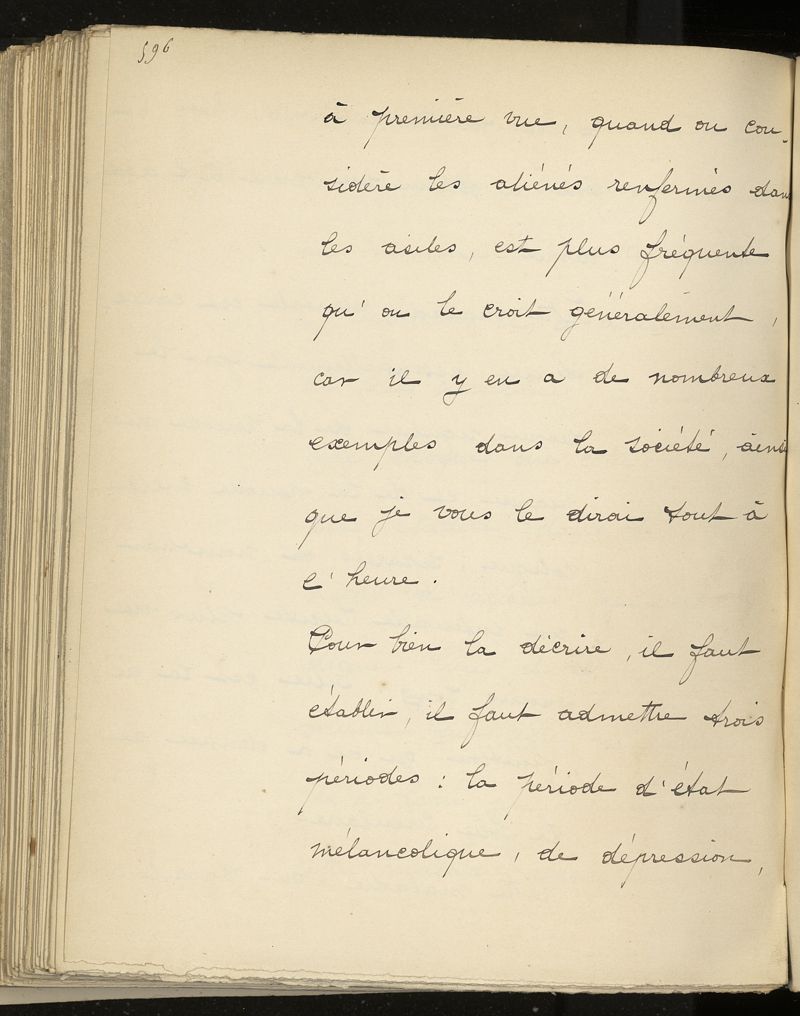 596
à première vue, quand on con-
sidère les aliénés renfermés dans
les asiles, est plus fréquente
qu'on le croit généralement,
car il y en a de nombreux
exemples dans la société, ainsi
que je vous le dirai tout à
l'heure.
Pour bien la décrire, il faut
établir, il faut admettre trois
périodes : la période d'état
mélancolique, de dépression,